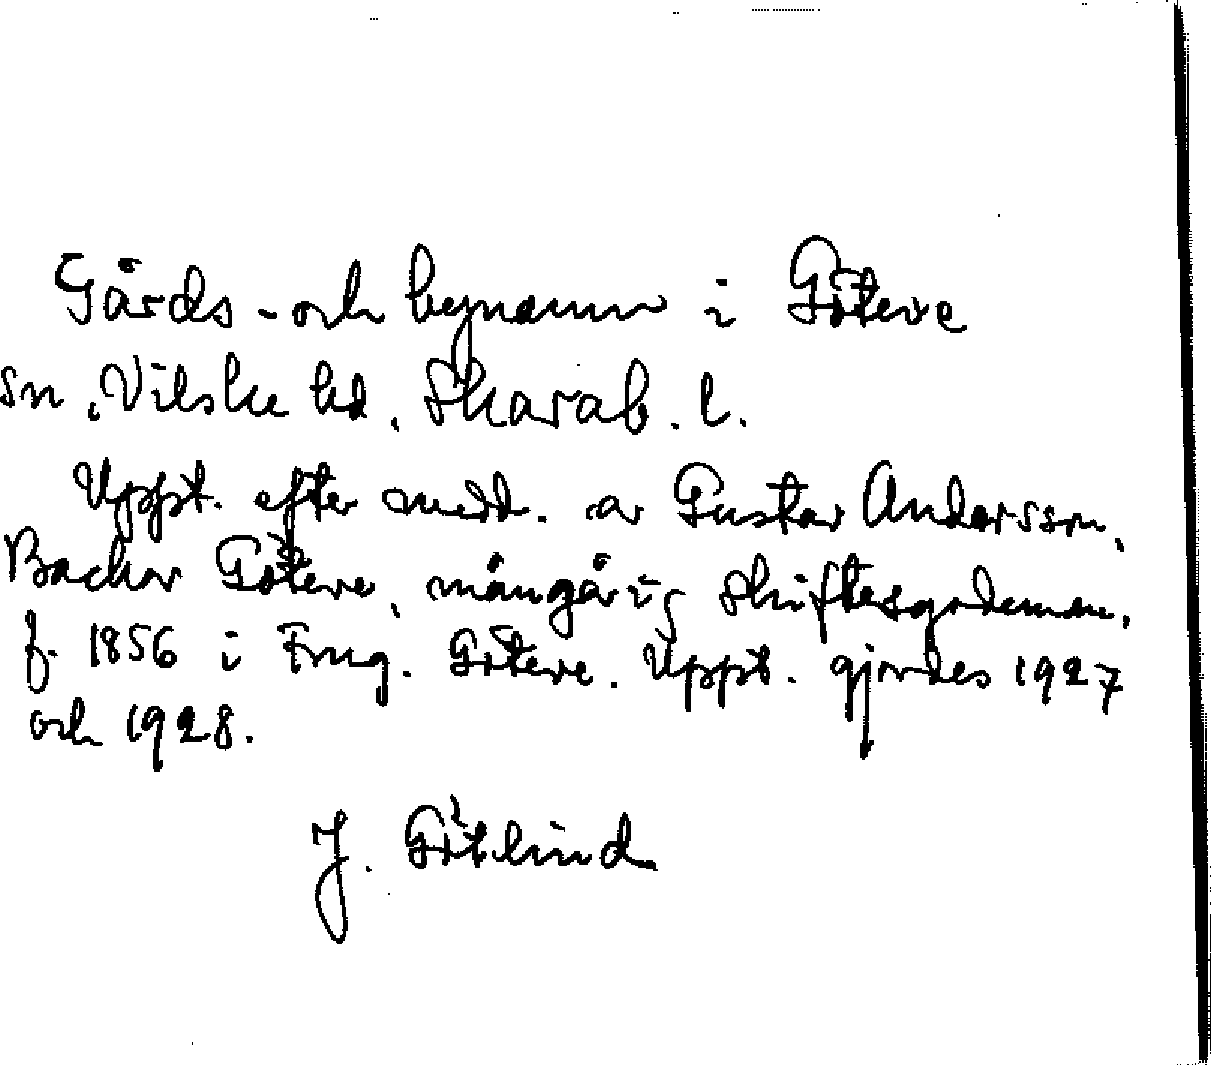 Gårds- och bynamn i Göteve
sn, Vilske hd, Skarab. l.
Uppt. efter medd. av Gustav Andersson,
Backor Göteve, mångårig skiftesgodeman,
f. 1856 i Frug. Göteve. Uppt. gjordes 1927
och 1928.
J. Götlind